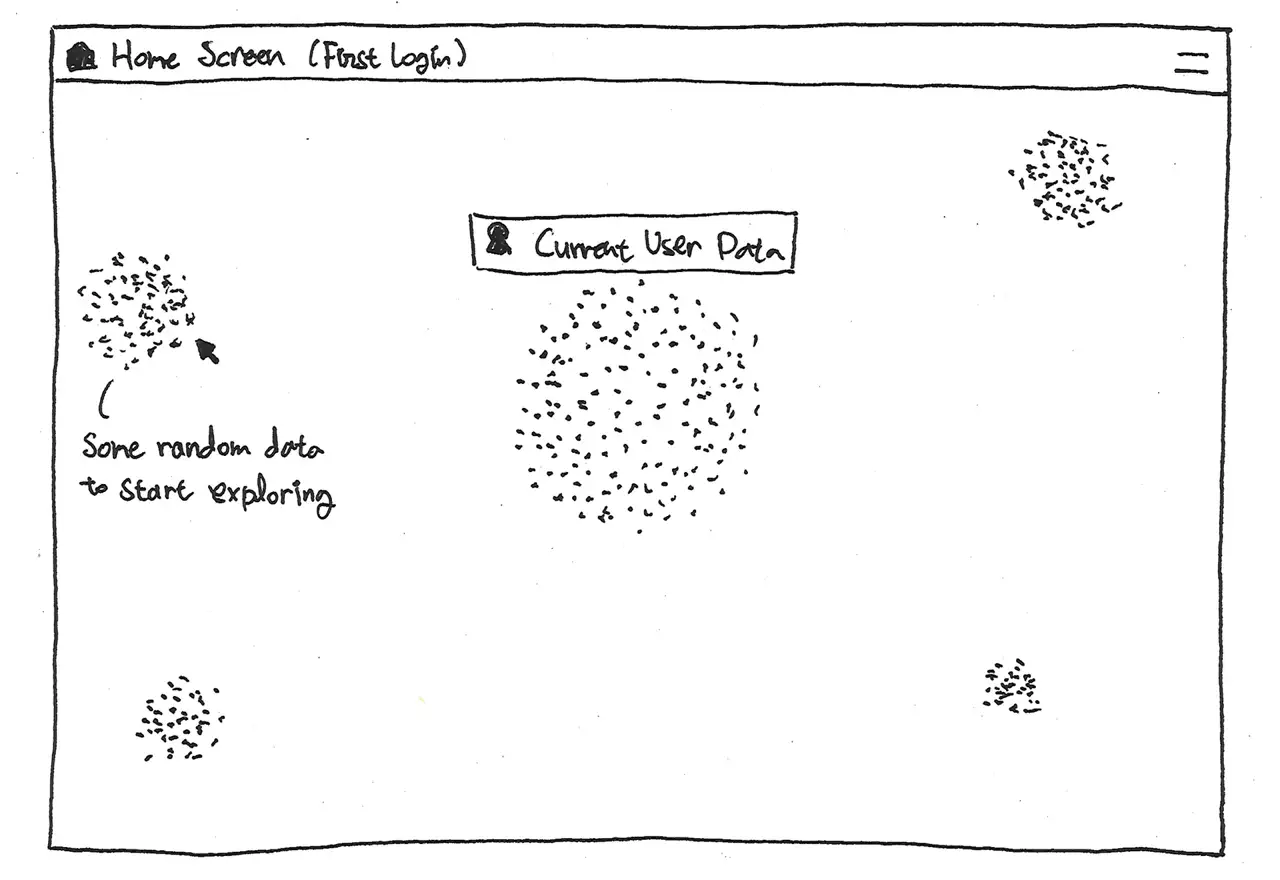 Home Screen (First Login)
Current User Data
Some random data
to start exploring